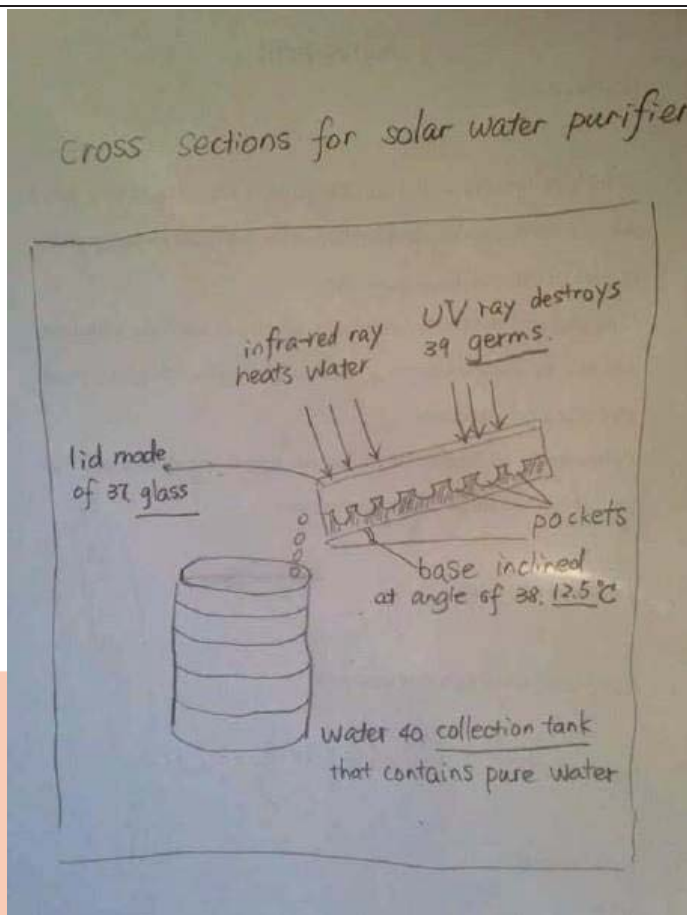 cross sections for solar water purifier
infra-red ray
heats water
UV ray destroys
39 germs.
lid made
of 37. glass
pockets
base inclined
at angle of 38. 12.5°C
water 40 collection tank
that contains pure water